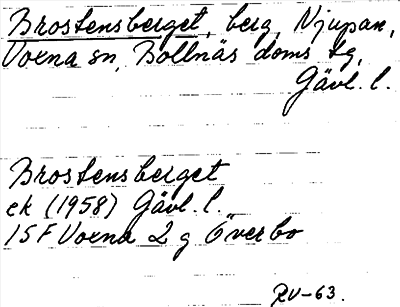 Brostensberget, berg, Njupan,
Voxna sn, Bollnäs doms tg,
Gävl. l.
Brostensberget
ek (1958) Gävl. l.
15F Voxna 2 g Överbo
RV-63.